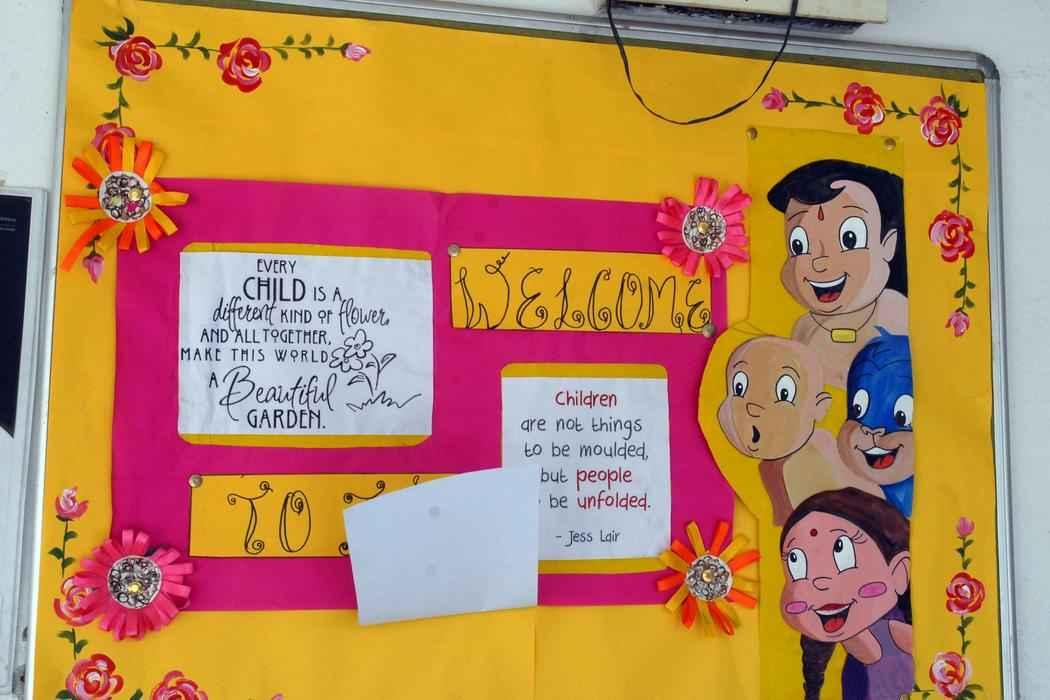 EVERY
CHILD IS A
different KIND OF flower,
AND ALL TOGETHER,
MAKE THIS WORLD
A Beautiful
GARDEN.
WELCOME
Children
are not things
to be moulded,
but people
be unfolded.
- Jess Lair
TO